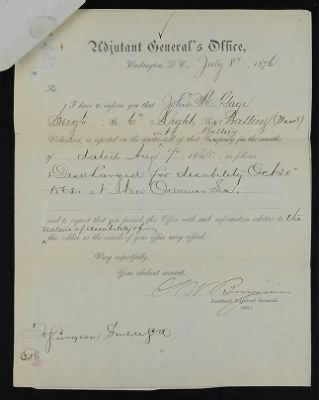 Adjutant General's Office,
Washington, D. C., July 8th 1876
Sir:
I have to inform you that John H. Gage
Serg't B. 6" Light Battery (Mass)
Volunteers, is reported on the muster-out of that Company for the months
of dated Aug 7, 1865, as follows
"Discharged for disability Oct 20"
1862, at New Orleans, La."
and to request that you furnish this Office with such information relative to the
nature of disability of
this soldier as the records of your office may afford.
Very respectfully,
Your obedient servant,
Assistant Adjutant General.
To Surgeon General